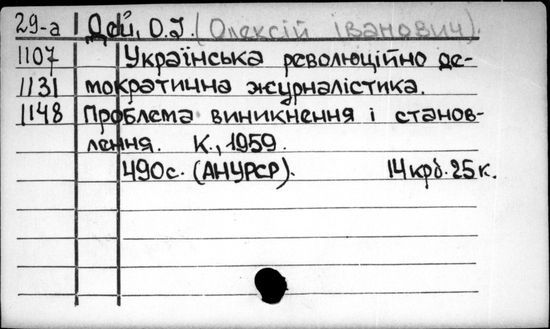 29-а Дей, О.І. (Олексій Іванович).
1107 Українська революційно де-
1131 мократична журналістика.
1148 Проблема виникнення і станов-
лення. К., 1959.
490с. (АНУРСР). 14 крб. 25 к.